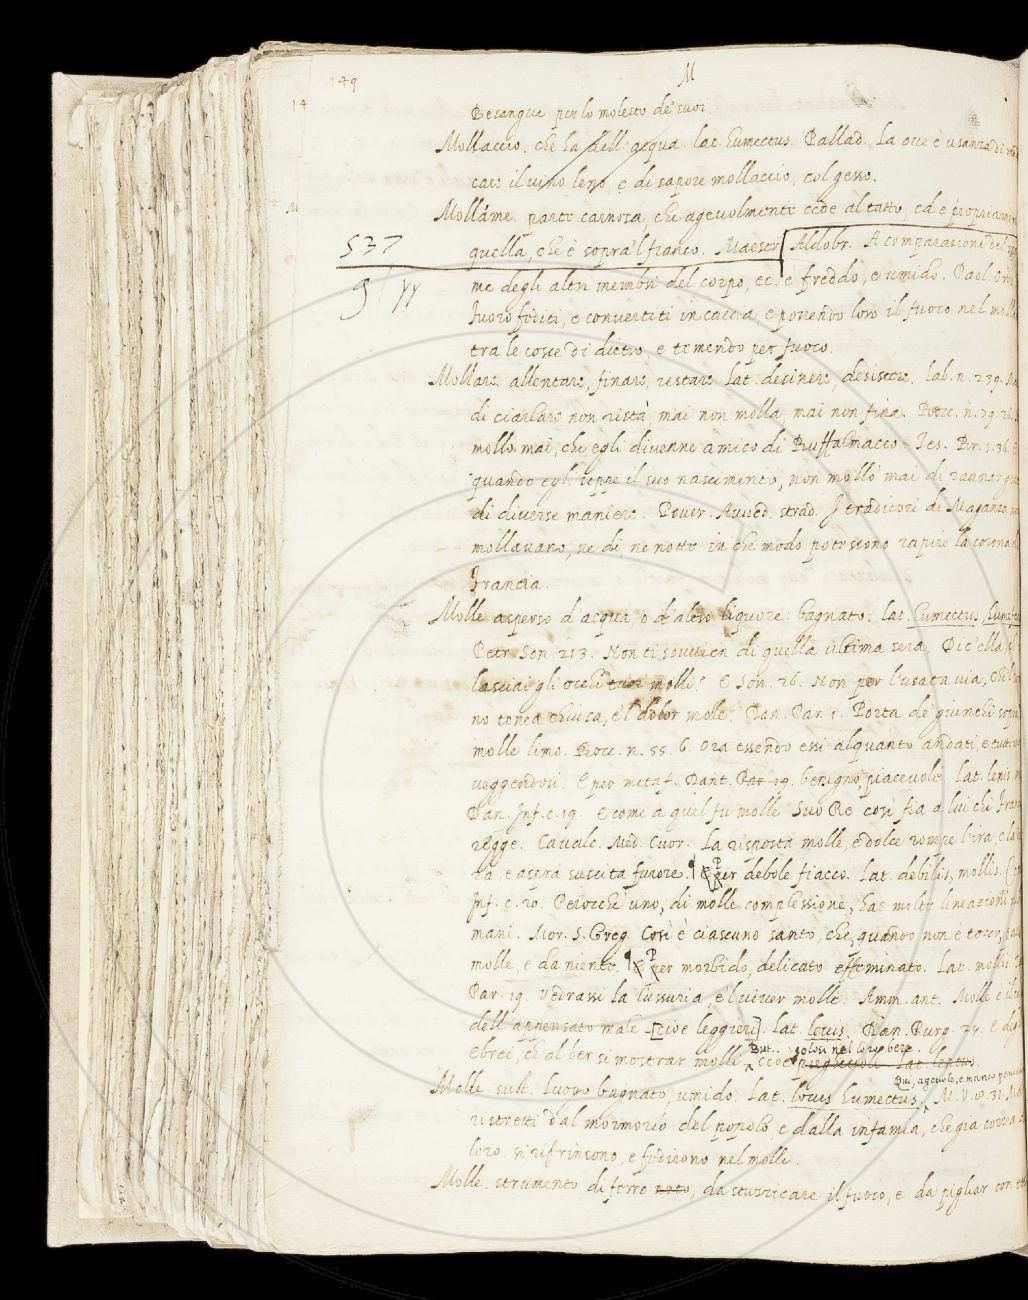 149
M
14
Besangue, per lo molesto de suoi.
Mollaccio. che ha dell' acqua. lat. humectus. Pallad. la ove è usanza di
care il vino leno, e di sapore mollaccio, col gesso.
M
Mollame. parte carnosa, che agevolmente cede al tatto, ed è propriamen
537
quella, che è sopra 'l fianco. Maestr Aldobr. A comparazione del
9 yy
me degli altri membri del corpo, ec. è freddo, e umido. Paol. Oros
Fuoro fediti, e convertiti in caccia, e ponendo loro il fuoco nel moll
tra le cosce di dietro, e temendo per fuoco.
Mollare. allentare, finare, restare. lat. desinere, desistere. Lab. n. 239.
di ciarlare non ristà mai non molla mai non fina. Bocc. n. 79.
mollò mai, che egli divenne amico di Buffalmacco. Tes. Br. 1. 36.
quando egli seppe il suo nascimento, non mollò mai di raunar
di diverse maniere. Pover. Avved. strad. I traditori di Maganza
mollavano, ne di, ne notte in che modo potessono rapire la corona
Francia.
Molle asperso d'acqua, o d'altro liquore: bagnato. lat. humectus,
Petr. Son. 213. Non ti sovvien di quella ultima sera, Dic' ella,
lasciai gli occhi tuoi molli? E Son. 26. Non per l'usata via, che
no tenea chiusa, e 'l dolor molle. Dan. Par. 1. Porta de giunchi sopra
molle limo. Bocc. n. 55. 6. Ora essendo essi alquanto andati, e tutti
veggendosi. E per metaf. Dant. Par 19. benigno, piacevole. lat. lenis
Dan. Inf. c. 19. E come a quel fu molle Suo Re così fia a lui chi Fran
regge. Cavalc. Med. Cuor. La risposta molle, e dolce rompe l'ira, e la
ra, e aspra suscita furore. E Per debole fiacco. lat. debilis, mollis.
Inf. c. 20. Perocchè uno, di molle complessione, hae molte lineazioni
mani. Mor. S. Greg. Così è ciascuno santo, che, quando non è tocco,
molle, e da niente. E Per morbido, delicato effeminato. lat. mollis
Par. 19. Vedrassi la lussuria, e 'l viver molle. Amm. ant. Molle è
dell' appensato male [cioè leggieri]. lat. levis. Dan. Purg. 24. E de
But. golosi nel loro bere.
Ebrei, ch' al ber si mostrar molli cioè pieghevoli lat. lentus.
Qui, agevole, e manco
Molle. sust. Luogo bagnato, umido. lat. locus humectus. M. V. 8. 31.
ristretti dal mormorio del popolo, e dalla infamia, che gia correa
loro, si rifrinsono, e fedirono nel molle.
Molle. strumento di ferro noto, da stuzzicare il fuoco, e da pigliar con